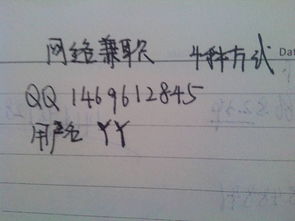 网络兼职 4种方式
Dat
QQ 1469612845
用户名 YY